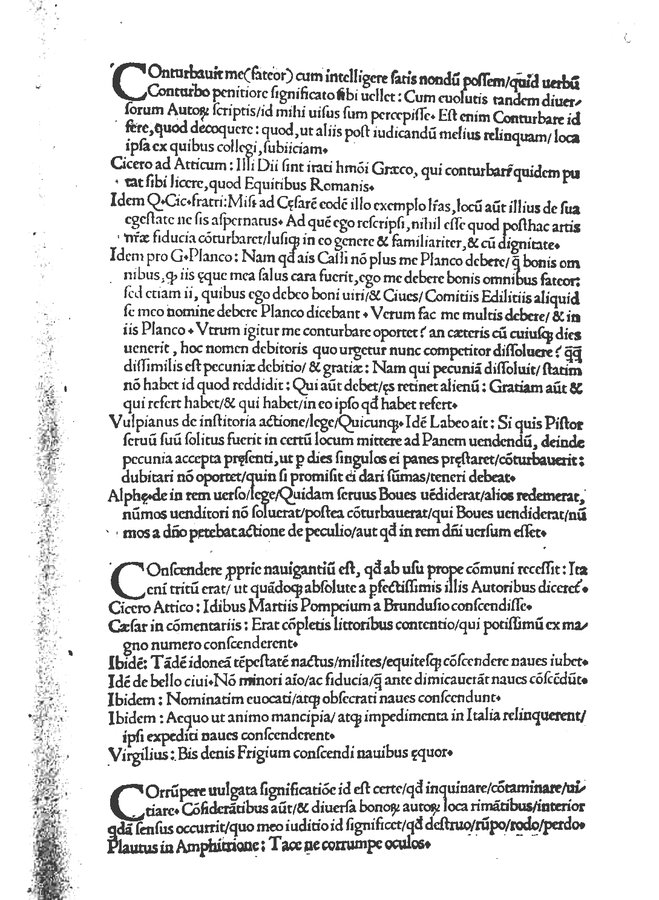 COnturbauit me(fateor) cum intelligere satis nondū possem/quid uerbū
Conturbo penitiore significato sibi uellet: Cum euolutis tandem diuer/
sorum Autoꝝ scriptis/id mihi uisus sum percepisse. Est enim Conturbare id
fere, quod decoquere: quod, ut aliis post iudicandū melius relinquam/ loca
ipsa ex quibus collegi, subiiciam.
Cicero ad Atticum: Illi Dii sint irati hmōi Græco, qui conturbarꝭ quidem pu
tat sibi licere, quod Equitibus Romanis.
Idem Q. Cic. fratri: Misꝭ ad Cęsarē eodē illo exemplo lr̄as, locū aūt illius de sua
egestate ne sis aspernatus. Ad quē ego rescripsi, nihil esse quod posthac artis
nr̄æ fiducia cōturbaret/lusiꝗ in eo genere & familiariter, & cū dignitate.
Idem pro G. Planco: Nam qd̄ ais Cassi nō plus me Planco debere/ꝗ̄ bonis om
nibus, ꝙ iis ęque mea salus cara fuerit, ego me debere bonis omnibus fateor:
sed etiam ii, quibus ego debeo boni uiri/& Ciues/ Comitiis Edilitiis aliquid
se meo nomine debere Planco dicebant. Verum fac me multis debere/ & in
iis Planco. Vtrum igitur me conturbare oportet? an cæteris cū cuiusꝗ dies
uenerit, hoc nomen debitoris quo urgetur nunc competitor dissoluere? ꝗ̄ꝗ̄
dissimilis est pecuniæ debitio/ & gratiæ: Nam qui pecuniā dissoluit/ statim
nō habet id quod reddidit: Qui aūt debet/ęs retinet alienū: Gratiam aūt &
qui refert habet/& qui habet/in eo ipso qd̄ habet refert.
Vulpianus de institoria actione/lege/Quicunꝗ. Idē Labeo ait: Si quis Pistor
seruū suū solitus fuerit in certū locum mittere ad Panem uendendū, deinde
pecunia accepta pręsenti, ut p dies singulos ei panes pręstaret/cōturbauerit:
dubitari nō oportet/quin si promisit ei dari sūmas/teneri debeat.
Alphę. de in rem uerso/lege/Quidam seruus Boues uēdiderat/alios redemerat,
nūmos uenditori nō soluerat/postea cōturbauerat/qui Boues uendiderat/nū
mos a dn̄o petebat actione de peculio/aut qd̄ in rem dn̄i uersum esset.
COnscendere ꝓprie nauigantiū est, qd̄ ab usu prope cōmuni recessit: Ita
ceni tritū erat/ ut quādoꝗ absolute a pfectissimis illis Autoribus diceret.
Cicero Attico: Idibus Martiis Pompeium a Brundusio conscendisse.
Cæsar in cōmentariis: Erat cōpletis littoribus contentio/qui potissimū ex ma/
gno numero conscenderent.
Ibidē: Tādē idoneā tēpestatē nactus/milites/equitesꝗ cōscendere naues iubet.
Idē de bello ciui. Nō minori aīo/ac fiducia/ꝗ̄ ante dimicauerāt naues cōscēdūt.
Ibidem: Nominatim euocati/atꝗ obsecrati naues conscendunt.
Ibidem: Aequo ut animo mancipia/ atꝗ impedimenta in Italia relinquerent/
ipsi expediti naues conscenderent.
Virgilius: Bis denis Frigium conscendi nauibus ęquor.
COrrūpere uulgata significatiōe id est certe/qd̄ inquinare/cōtaminare/ui/
tiare. Cōsiderātibus aūt/& diuersa bonoꝝ autoꝝ loca rimātibus/interior
qdā sensus occurrit/quo meo iuditio id significet/qd̄ destruo/rūpo/rodo/perdo.
Plautus in Amphitrione: Tace ne corrumpe oculos.